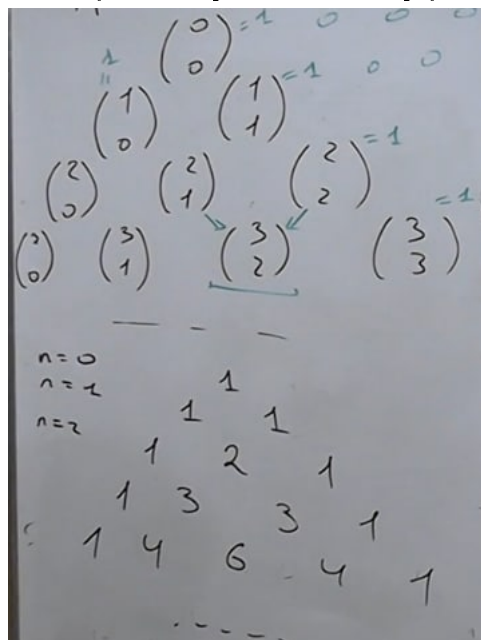 (0 0) = 1 0 0 0
1 = (1 0) (1 1) = 1 0 0
(2 0) (2 1) (2 2) = 1
(3 0) (3 1) (3 2) (3 3) = 1
n=0
n=1 1
n=2 1 1
1 2 1
1 3 3 1
1 4 6 4 1